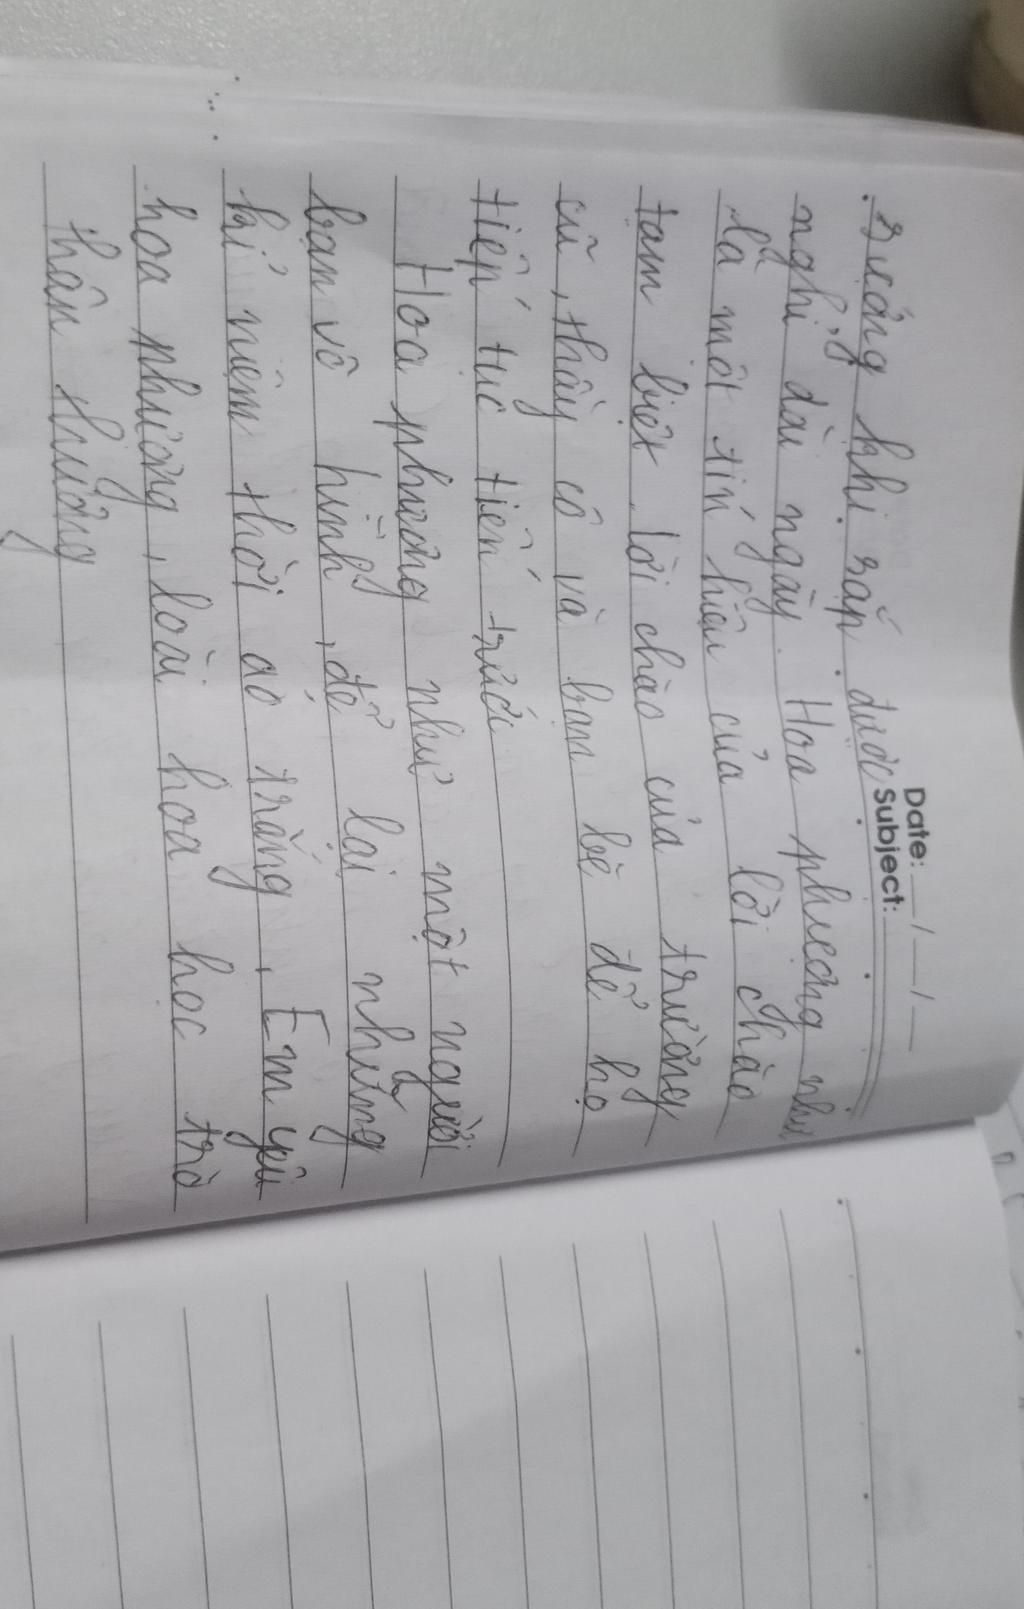 Date: __/__/__
Subject:
sướng khi sắp được
nghỉ dài ngày. Hoa phương như
là một tín hiệu của lời chào
tạm biệt, lời chào của trường
cũ, thầy cô và bạn bè để họ
tiếp tục tiến trước
Hoa phương như một người
bạn vô hình, để lại những
kỉ niệm thời áo trắng. Em yêu
hoa phương, loài hoa học trò
thân thương